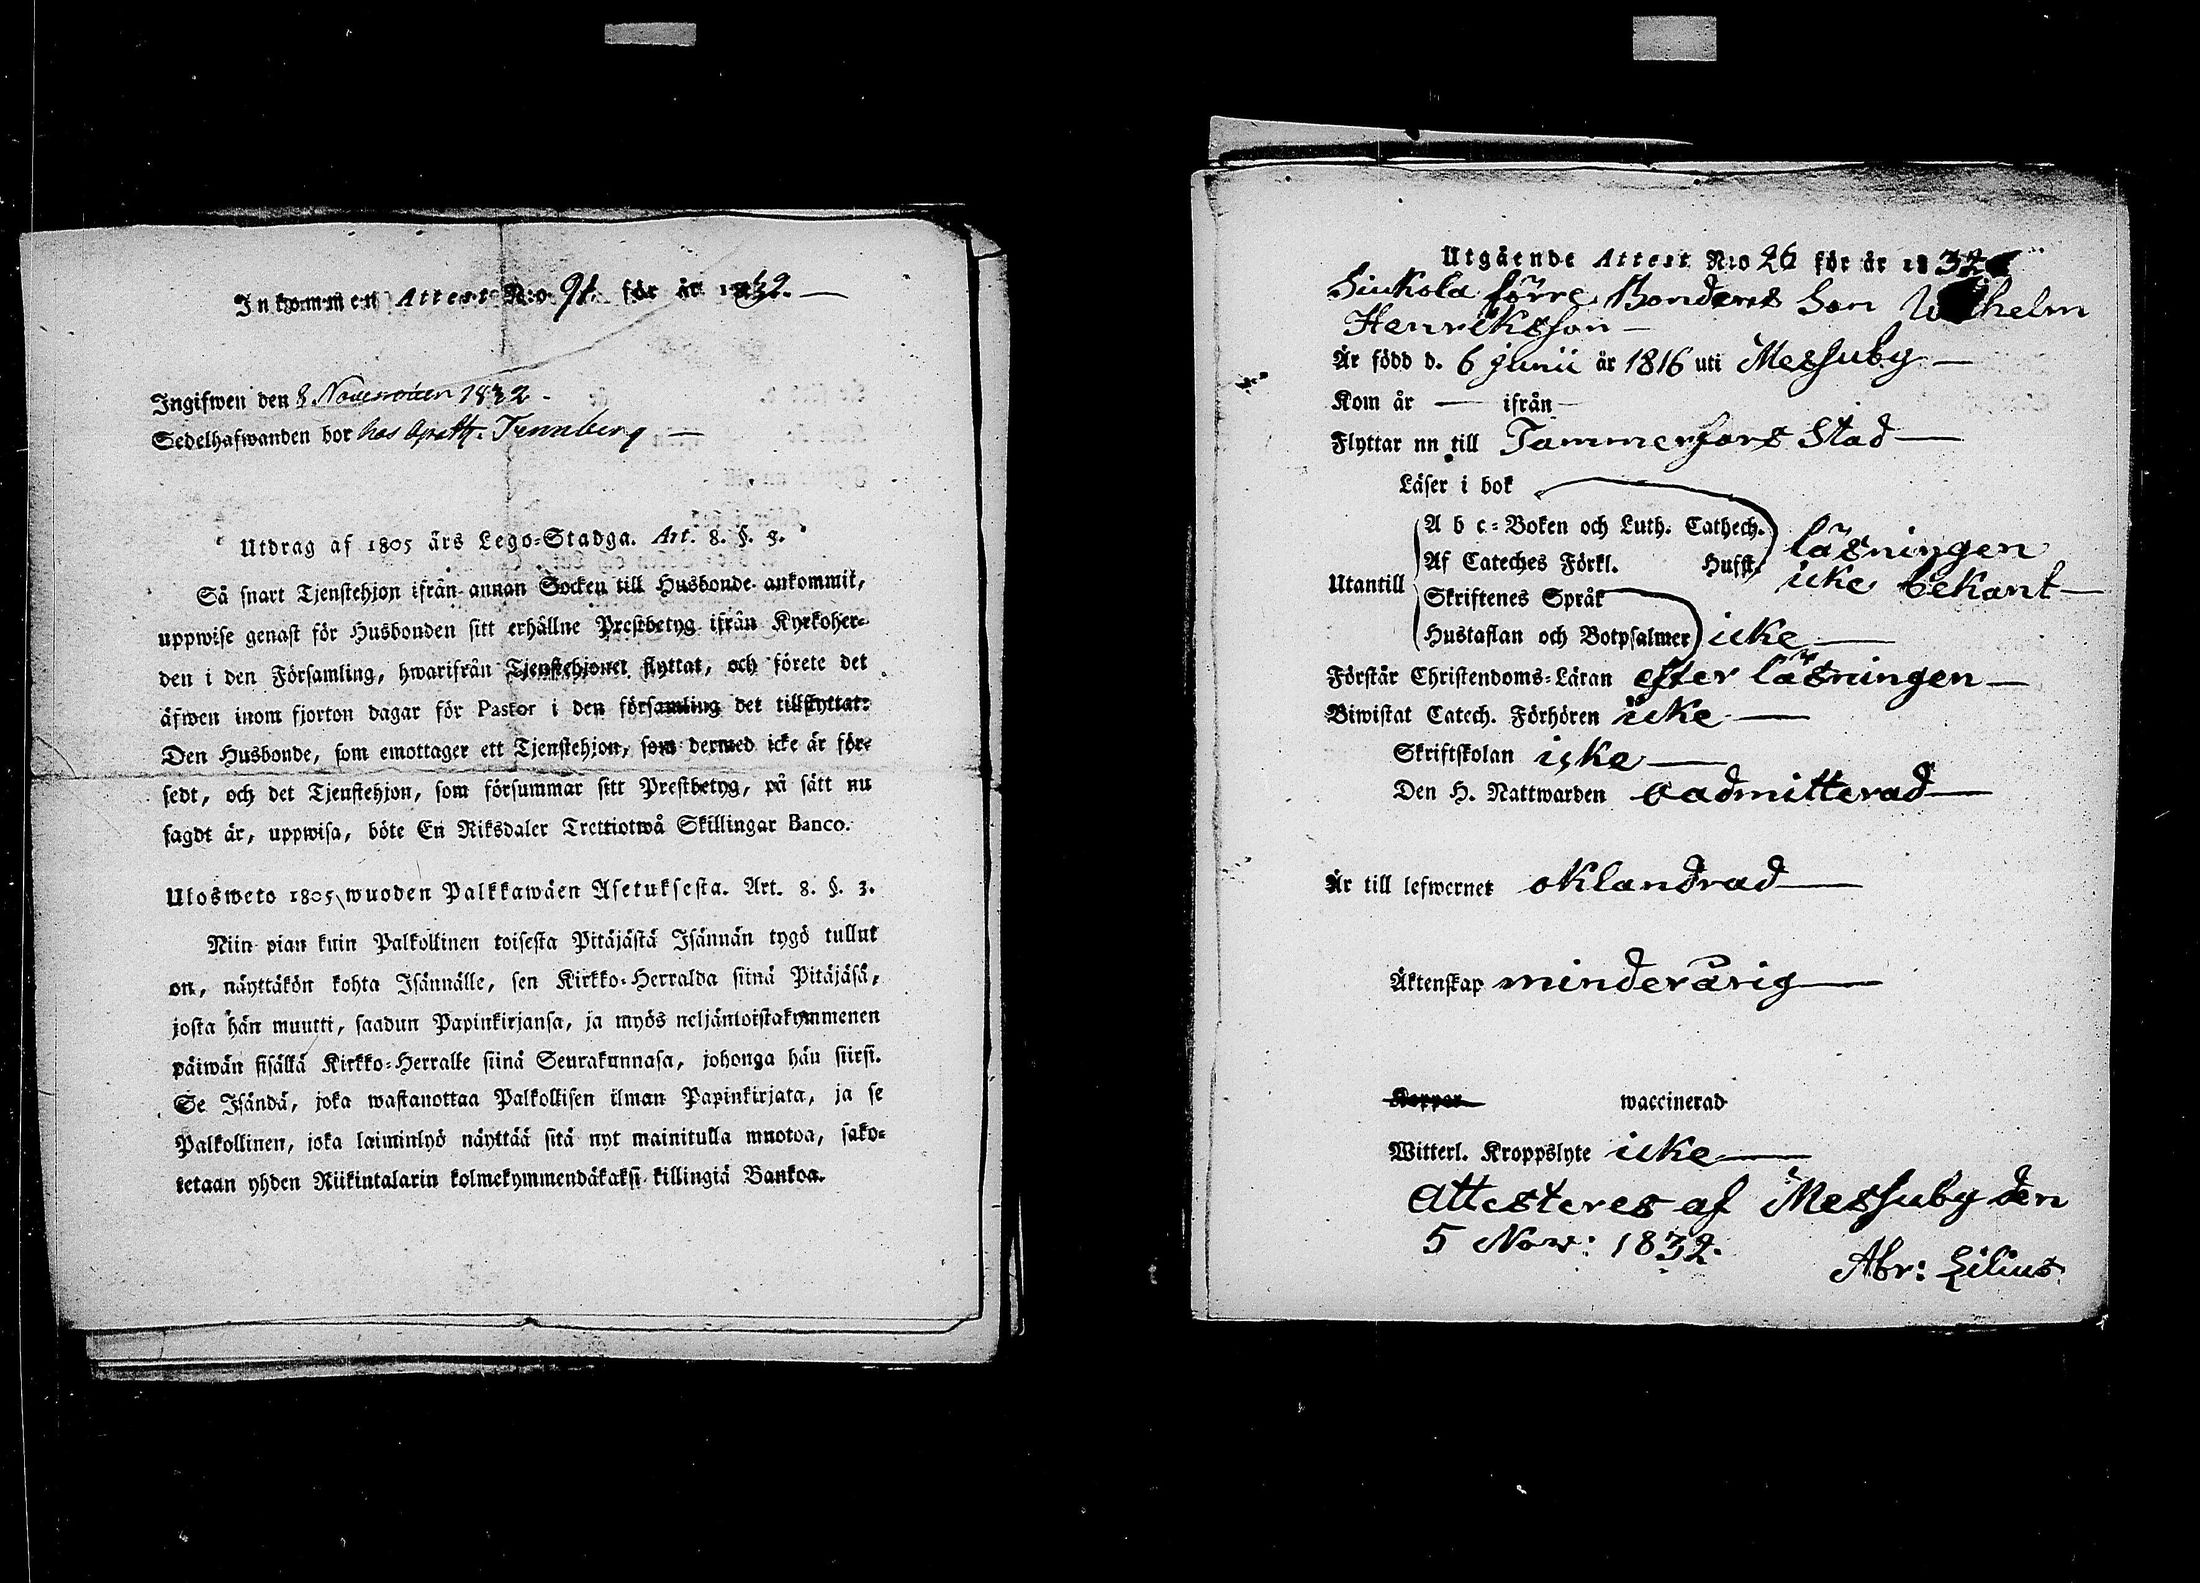 Inkommen Attest N:o 91. för år 1832. —
Ingifwen den 8 November 1832 -
Sedelhafwanden bor hos Apoth. Tennberg —
Utdrag af 1805 års Lego=Stadga. Art. 8. §. 3.
Så snart Tjenstehjon ifrån annan Socken till Husbonde ankommit,
uppwise genast för Husbonden sitt erhållne Prestbetyg ifrån Kyrkoher=
den i den Församling, hwarifrån Tjenstehjonet flyttat, och förete det
äfwen inom fjorton dagar för Pastor i den församling det tillflyttat:
Den Husbonde, som emottager ett Tjenstehjon, som dermed icke är för=
sedt, och det Tjenstehjon, som försummar sitt Prestbetyg, på sätt nu
sagdt är, uppwisa, böte En Riksdaler Trettiotwå Skillingar Banco.
Ulosweto 1805 wuoden Palkkawäen Asetuksesta. Art. 8. §. 3.
Niin pian kuin Palkollinen toisesta Pitäjästä Isännän tygö tullut
on, näyttäkön kohta Isännälle, sen Kirkko=Herralda siinä Pitäjäsä,
josta hän muutti, saadun Papinkirjansa, ja myös neljäntoistakymmenen
päiwän sisällä Kirkko=Herralle siinä Seurakunnasa, johonga hän siirsi.
Se Isändä, joka wastanottaa Palkollisen ilman Papinkirjata, ja se
Palkollinen, joka laiminlyö näyttää sitä nyt mainitulla muotoa, sako=
tetaan yhden Riikintalarin kolmekymmendäkaksi killingiä Bankoa.
Utgående Attest N:o 26 för år 1832
förre Bondens Son Wilhelm
Henriksson —
Är född d. 6 junii år 1816 uti Messuby —
Kom år — ifrån —
Flyttar nn till Tammerfors Stad —
Läser i bok
A b c=Boken och Luth. Cathech. läsningen
Af Cateches Förkl. Husst. icke bekant —
Utantill
Skriftenes Språk
Hustaflan och Botpsalmer icke —
Förstår Christendoms=Läran efter läsningen —
Biwistat Catech. Förhören icke —
Skriftskolan icke —
Den H. Nattwarden oadmitterad —
Är till lefwernet oklandrad —
Äktenskap minderårig —
Koppor waccinerad
Witterl. Kroppslyte icke —
Attesteres af Messuby den
5 Now: 1832.
Abr: Lilius